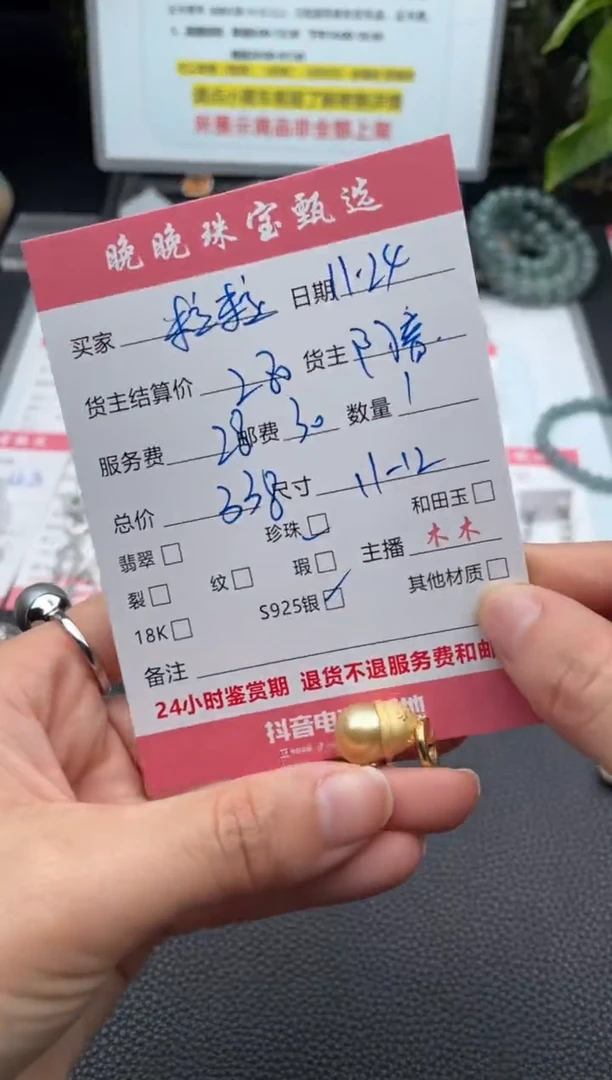 所展示商品非全部上架
晚晚珠宝甄选
买家 粒粒 日期 11.24
货主结算价 280 货主
服务费 28 邮费 30 数量 1
总价 338 尺寸 11-12
翡翠 珍珠 和田玉
裂 纹 瑕 主播 木木
18K S925银 其他材质
备注
24小时鉴赏期 退货不退服务费和邮
抖音电